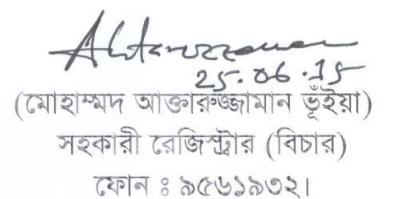 Aktaruzzaman
25.06.15
(মোহাম্মদ আক্তারুজ্জামান ভূঁইয়া)
সহকারী রেজিস্ট্রার (বিচার)
ফোন ঃ ৯৫৬১৯৩২।